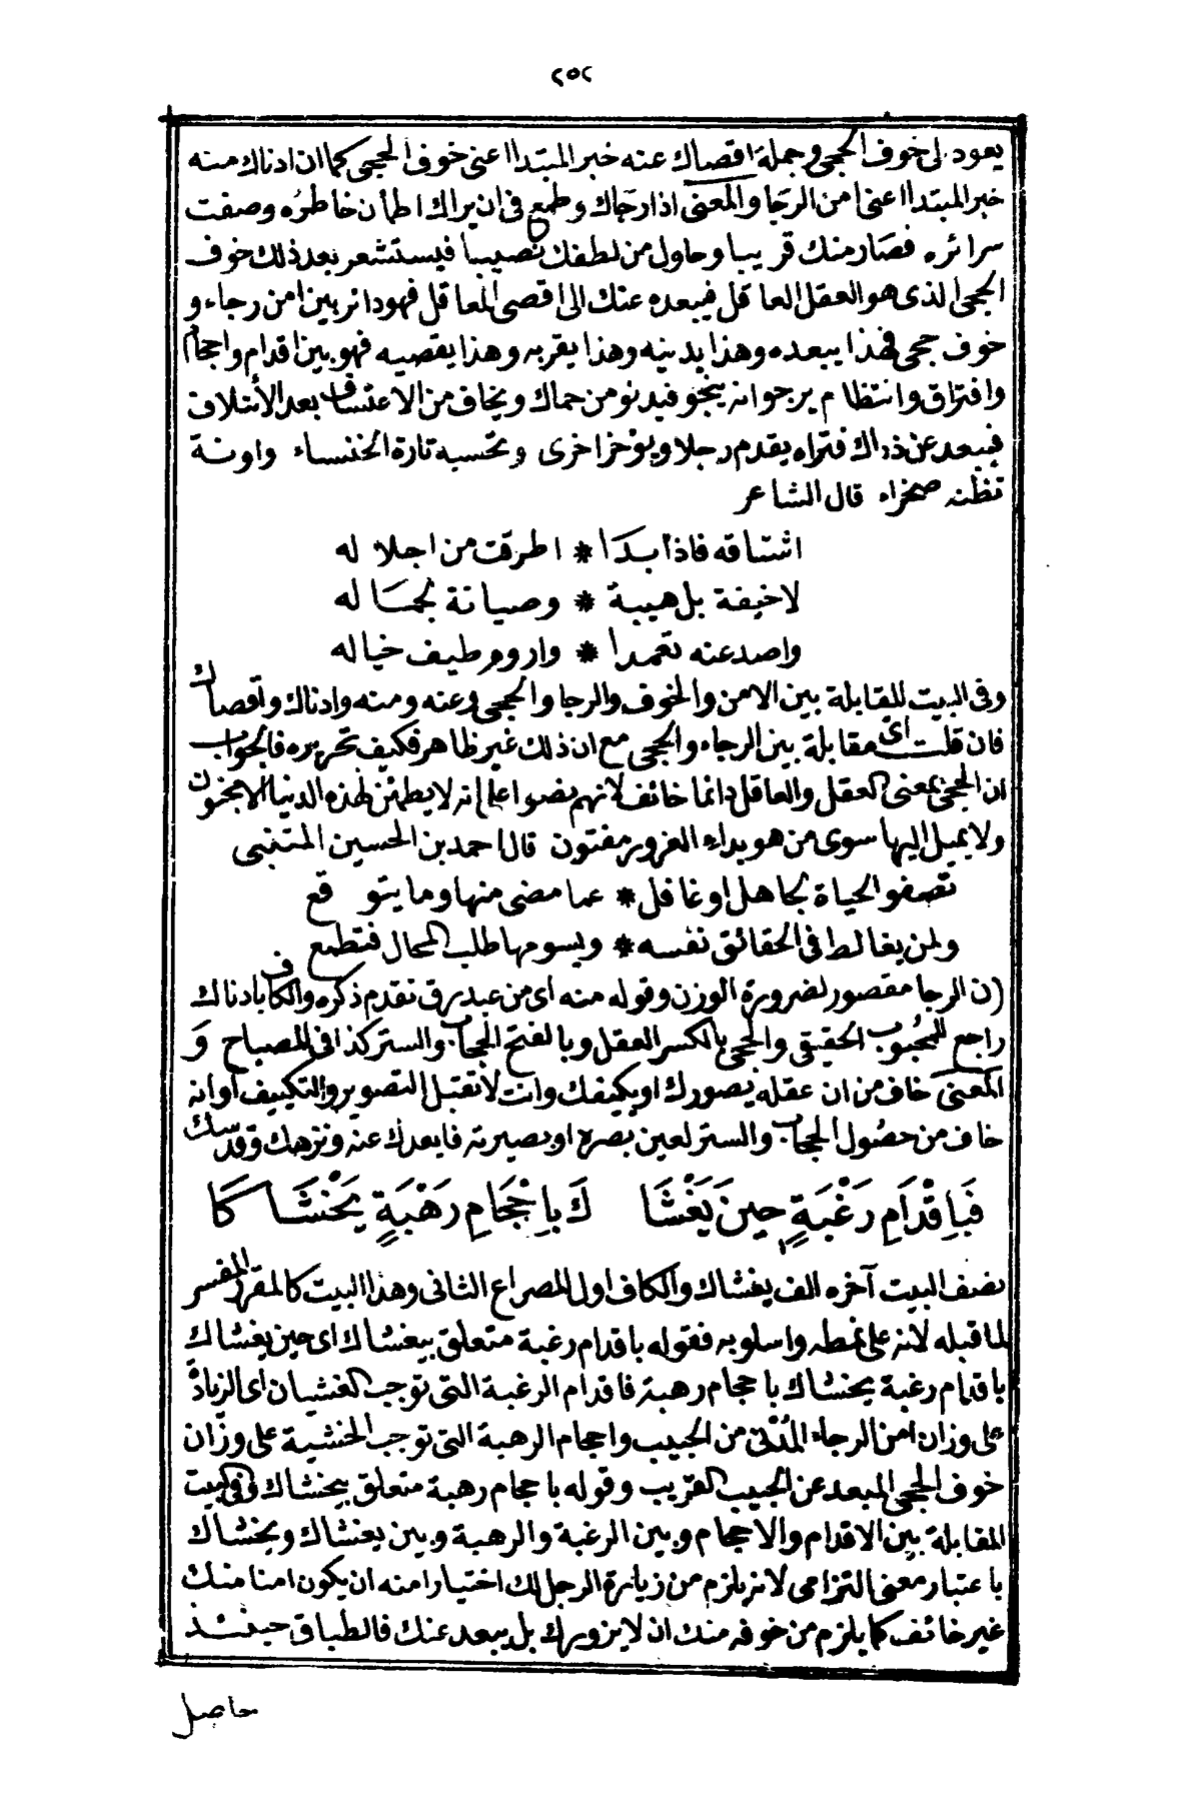 ٢٥٢
يعود لى خوف الحجى وجملة اقصاك عنه خبر المبتدا اعنى خوف الحجى كما ان ادناك منه
خبر المبتدا اعنى امن الرجا والمعنى اذا رجاك وطمع فى ان يراك اطمأن خاطره وصفت
سرائره فصار منك قريبا وحاول من لطفك نصيبا فيستشعر بعد ذلك خوف
الحجى الذى هو العقل العاقل فيبعده عنك الى اقصى المعاقل فهو دائر بين امن رجاء و
خوف حجى فهذا يبعده وهذا يدنيه وهذا يقربه وهذا يقصيه فهو بين اقدام واحجام
وافتراق وانتظام يرجو انه ينجو فيدنو من حماك ويخاف من الاعتساف بعد الأئتلاف
فيبعد عن ذراك فتراه يقدم رجلا ويؤخر اخرى وتحسبه تارة الخنساء واونة
تظنه صخراء قال الشاعر
اشتاقه فاذا بدا * اطرقت من اجلاله
لا خيفة بل هيبة * وصيانة لجماله
واصد عنه تعمدا * واروم طيف خياله
وفى البيت المقابلة بين الامن والخوف والرجا والحجى وعنه ومنه وادناك واقصاك
فان قلت اى مقابلة بين الرجاء والحجى مع ان ذلك غير ظاهر فكيف تحريره فالجواب
ان الحجى بمعنى العقل والعاقل دائما خائف لانهم نصوا على انه لا يطمئن لهذه الدنيا الا مجنون
ولا يميل اليها سوى من هو بداء الغرور مفتون قال احمد بن الحسين المتنبى
تصفو الحياة لجاهل او غافل * عما مضى منها وما يتوقع
ولمن يغالط فى الحقائق نفسه * ويسومها طلب المحال فتطمع
(ن) الرجا مقصور لضرورة الوزن وقوله منه اى من عبد رق تقدم ذكره والكاف بادناك
راجع للمحبوب الحقيقى والحجى بالكسر العقل وبالفتح الحجاب والستر كذا فى المصباح و
المعنى خاف من ان عقله يصورك او يكيفك وانت لا تقبل التصوير والتكييف أو انه
خاف من حصول الحجاب والستر لعين بصره او بصيرته فابعدك عنه ونزهك وقدسك
فَبِاِقْدَامِ رَغْبَةٍ حِينَ يَغْشَا كَ بِاِحْجَامِ رَهْبَةٍ يَخْشَاكَا
نصف البيت آخره الف يغشاك والكاف اول المصراع الثانى وهذا البيت كالمقرر المفسر
لما قبله لانه على نمطه واسلوبه فقوله باقدام رغبة متعلق بيغشاك اى حين يغشاك
باقدام رغبة يخشاك باحجام رهبة فاقدام الرغبة التى توجب الغشيان اى الزيادة
على وزان امن الرجاء المُدْنى من الحبيب واحجام الرهبة التى توجب الخشية على وزان
خوف الحجى المبعد عن الحبيب القريب وقوله باحجام رهبة متعلق بيخشاك وفى البيت
المقابلة بين الاقدام والاحجام وبين الرغبة والرهبة وبين يغشاك ويخشاك
باعتبار معنى التزامى لانه يلزم من زيارة الرجل لك اختيارا منه ان يكون امنا منك
غير خائف كما يلزم من خوفه منك ان لا يزورك بل يبعد عنك فالطباق حينئذ
حاصل